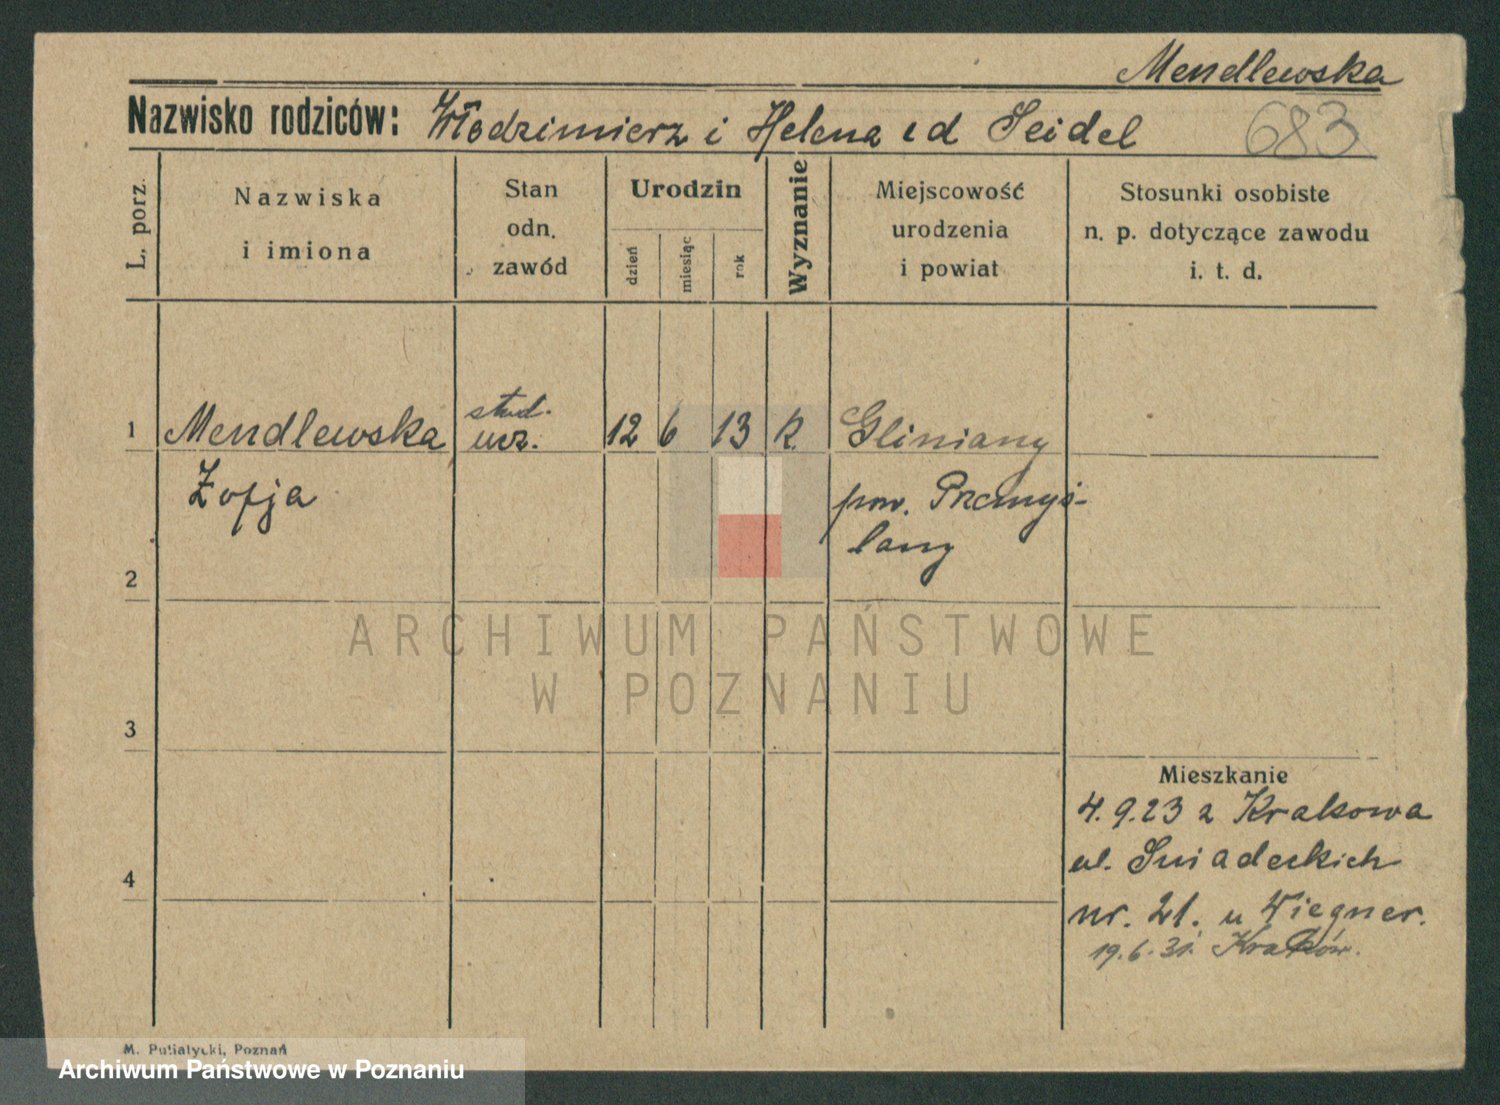 Mendlewska
Nazwisko rodziców: Włodzimierz i Helena z d Seidel
683
L. porz.
Nazwiska
i imiona
Stan
odn.
zawód
Urodzin
dzień
miesiąc
rok
Wyznanie
Miejscowość
urodzenia
i powiat
Stosunki osobiste
n. p. dotyczące zawodu
i. t. d.
1 Mendlewska stud. ucz. 12 6 13 R. Gliniany
Zofja pow. Przemyś-
lany
2
3
4
ARCHIWUM PAŃSTWOWE
W POZNANIU
Mieszkanie
4.9.23 z Krakowa
ul. Śniadeckich
nr. 21. u Wiegner.
19.6.31. Kraków.
M. Putiatycki, Poznań
Archiwum Państwowe w Poznaniu